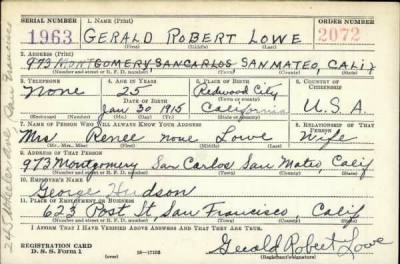 SERIAL NUMBER
1. NAME (Print)
ORDER NUMBER
1963
GERALD ROBERT LOWE
2072
(First) (Middle) (Last)
2. ADDRESS (Print)
973 MONTGOMERY, SAN CARLOS SAN MATEO, CALIF
(Number and street or R. F. D. number) (Town) (County) (State)
3. TELEPHONE
4. AGE IN YEARS
5. PLACE OF BIRTH
6. COUNTRY OF CITIZENSHIP
None
25
Redwood City
DATE OF BIRTH
(Town or county)
Jan 30 1915
California
U.S.A.
(Exchange) (Number)
(Mo.) (Day) (Yr.)
(State or country)
7. NAME OF PERSON WHO WILL ALWAYS KNOW YOUR ADDRESS
8. RELATIONSHIP OF THAT PERSON
Mrs Renee none Lowe Wife
(Mr., Mrs., Miss) (First) (Middle) (Last)
9. ADDRESS OF THAT PERSON
973 Montgomery San Carlos San Mateo, Calif
(Number and street or R. F. D. number) (Town) (County) (State)
10. EMPLOYER'S NAME
George Hudson
11. PLACE OF EMPLOYMENT OR BUSINESS
623 Post St, San Francisco Calif
(Number and street or R. F. D. number) (Town) (County) (State)
I AFFIRM THAT I HAVE VERIFIED ABOVE ANSWERS AND THAT THEY ARE TRUE.
REGISTRATION CARD
D. S. S. Form 1
(over)
16—17105
Gerald Robert Lowe
(Registrant's signature)
San Francisco